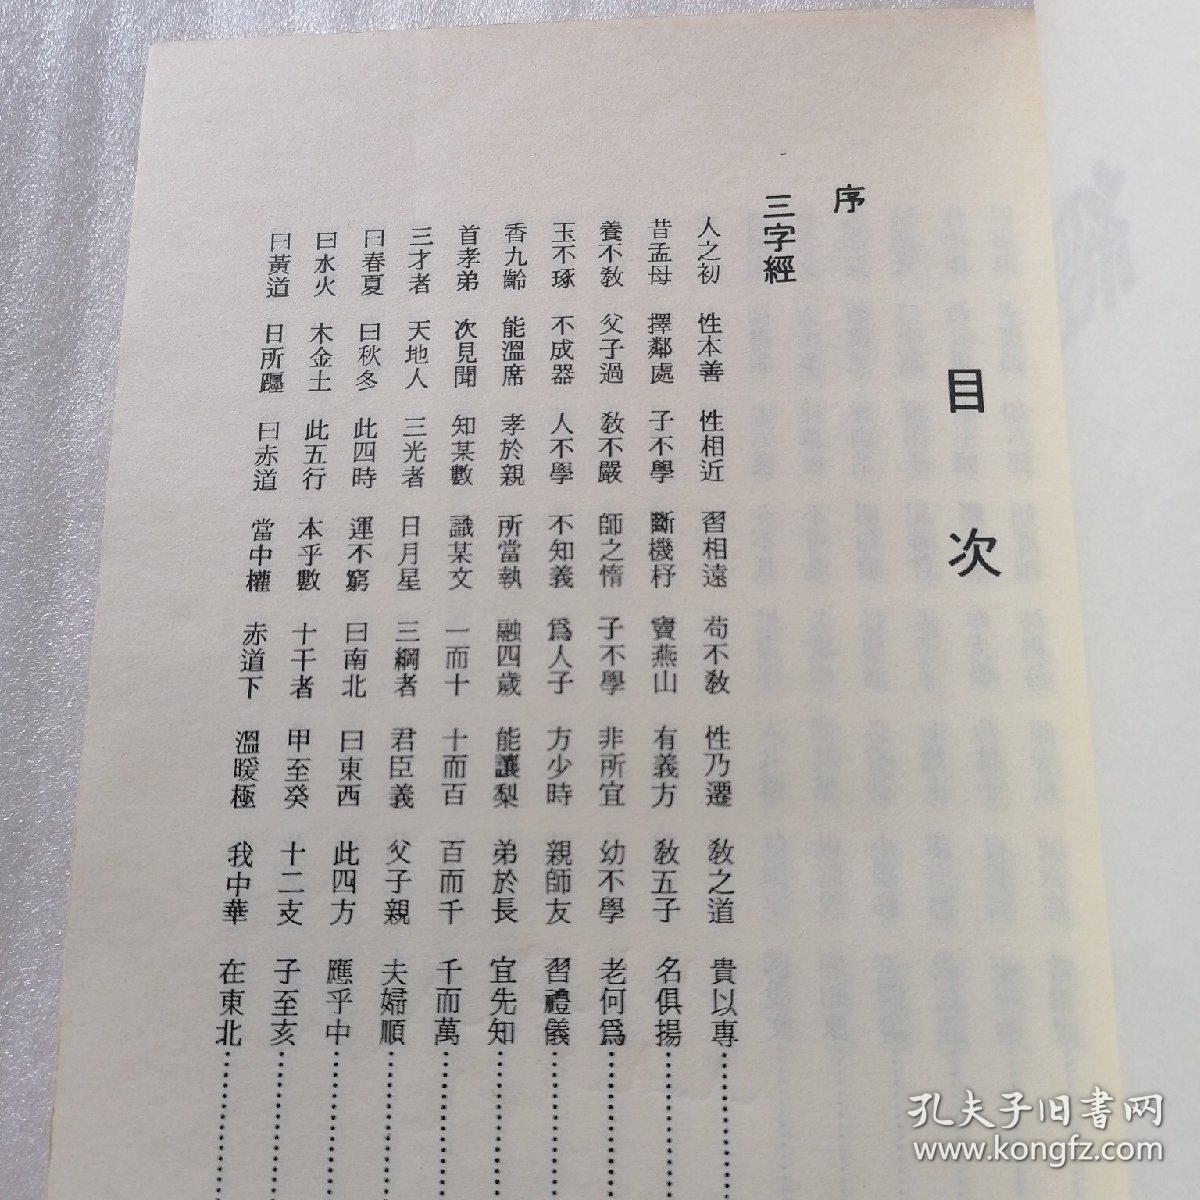 目次
序
三字經
人之初 性本善 性相近 習相遠 苟不教 性乃遷 教之道 貴以專
昔孟母 擇鄰處 子不學 斷機杼 竇燕山 有義方 教五子 名俱揚
養不教 父子過 教不嚴 師之惰 子不學 非所宜 幼不學 老何爲
玉不琢 不成器 人不學 不知義 爲人子 方少時 親師友 習禮儀
香九齡 能溫席 孝於親 所當執 融四歲 能讓梨 弟於長 宜先知
首孝弟 次見聞 知某數 識某文 一而十 十而百 百而千 千而萬
三才者 天地人 三光者 日月星 三綱者 君臣義 父子親 夫婦順
曰春夏 曰秋冬 此四時 運不窮 曰南北 曰東西 此四方 應乎中
曰水火 木金土 此五行 本乎數 十干者 甲至癸 十二支 子至亥
曰黃道 日所躔 曰赤道 當中權 赤道下 溫暖極 我中華 在東北
孔夫子旧书网
www.kongfz.com